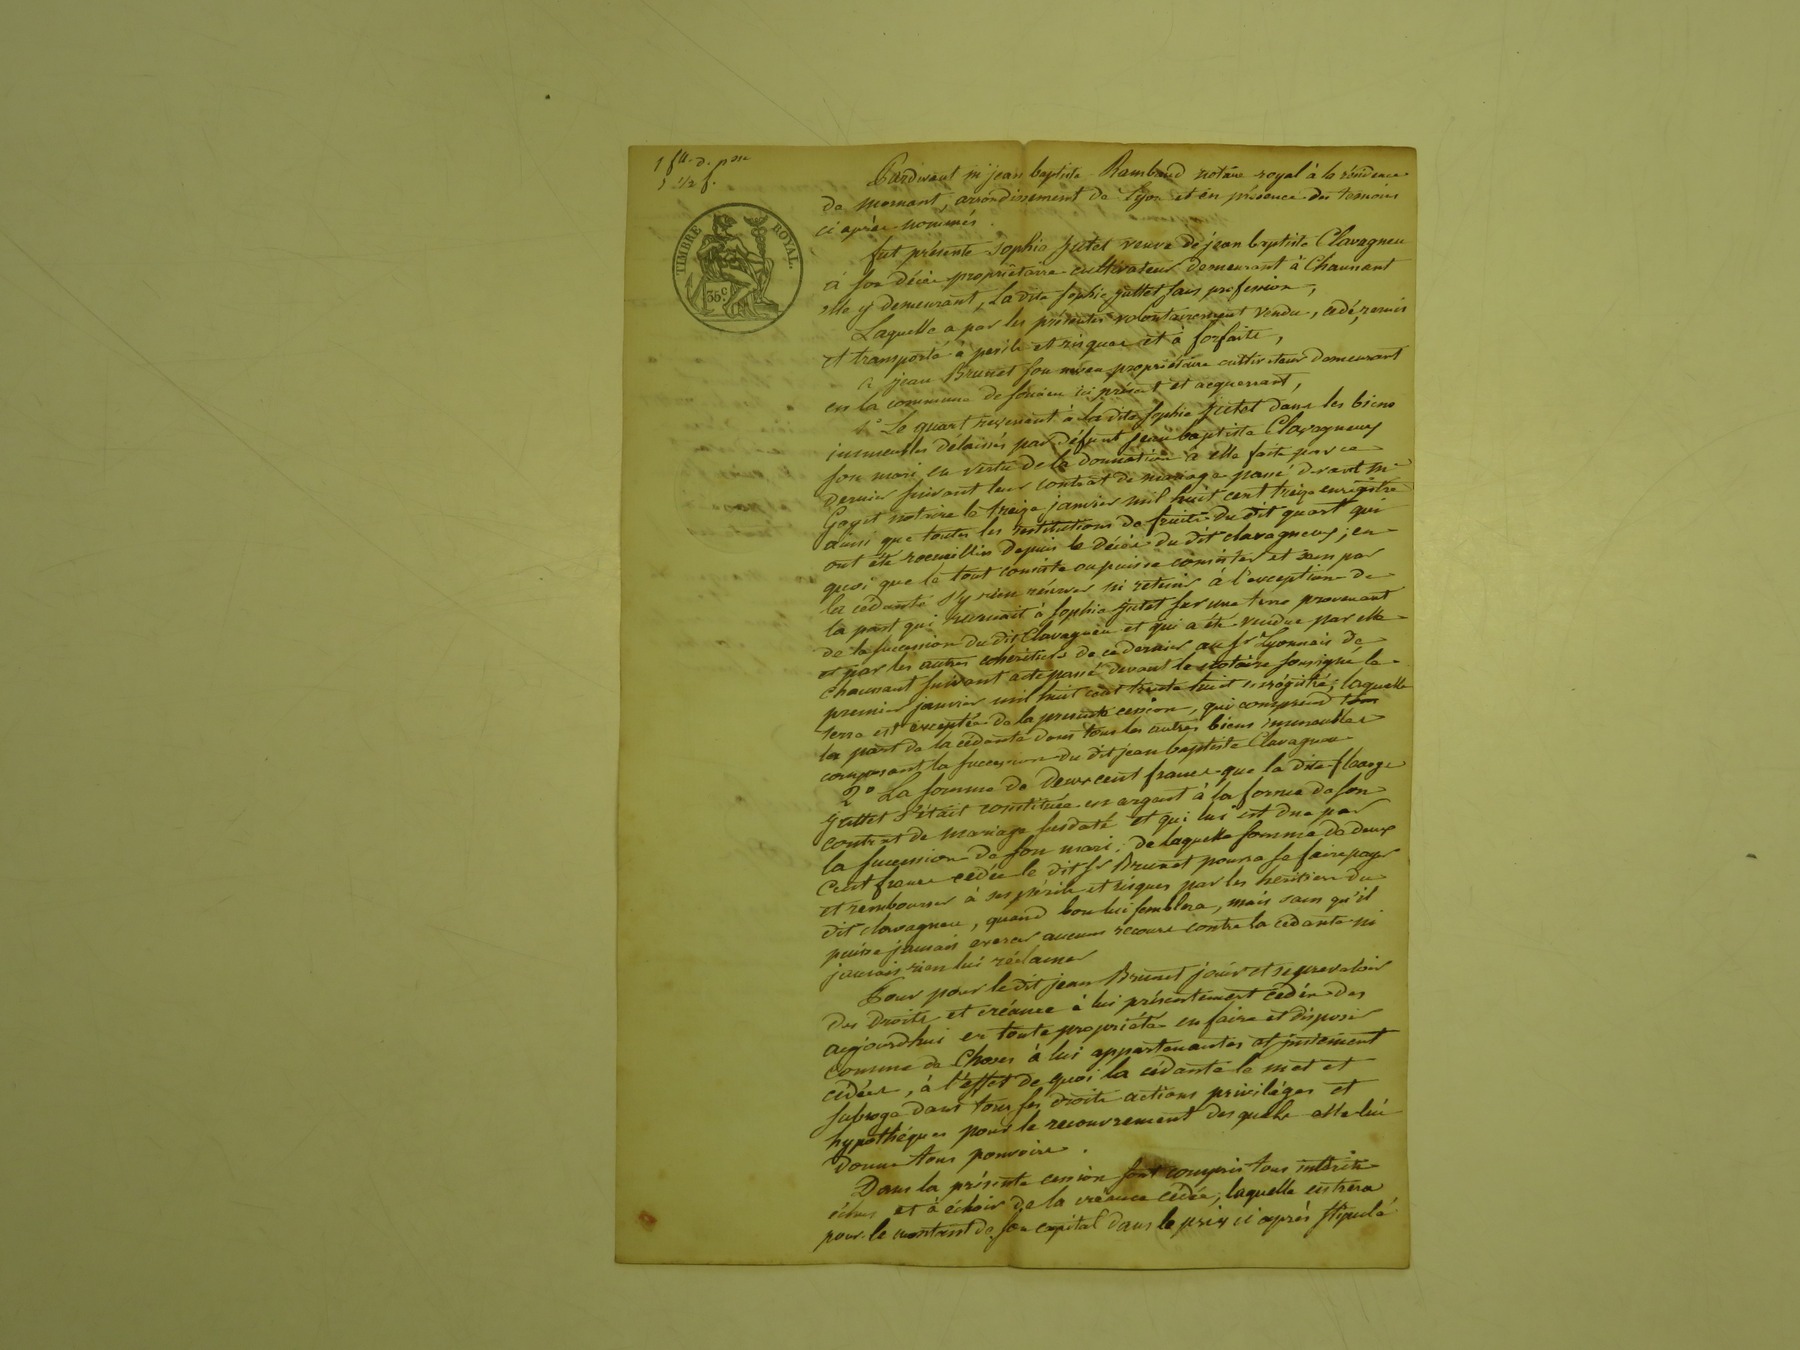 TIMBRE ROYAL.
35c
Pardevant me jean baptiste Rambaud notaire royal à la résidence
de mornant, arrondissement de Lyon et en présence des temoins
ci après nommés.
fut présente Sophie jutet veuve de jean baptiste Clavagneu
à son décès propriétaire cultivateur demeurant à Chaussant
elle y demeurant, La dite Sophie juttet sans profession,
Laquelle a par les présentes volontairement vendu, cédé, remis
et transporté à perils et risques et à forfaite,
à jean Brunet son neveu propriétaire cultivateur demeurant
en la commune de ici présent et acquerrant,
1° Le quart revenant à la dite Sophie jutet dans les biens
immeubles délaissés par défunt jean baptiste Clavagneux
son mari, en vertu de la donnation à elle faite par ce
dernier suivant leur contrat de mariage passé devant me
Gayet notaire le treize janvier mil huit cent treize enregistré
ainsi que toutes les restitutions de fruits du dit quart qui
ont été recueillis depuis le décès du dit clavagneux, en
quoi que le tout consiste ou puisse consister et sans par
la cédante s'y rien réserver ni retenir à l'exception de
la part qui revenait à Sophie jutet sur une terre provenant
de la succession du dit Clavagneu et qui a été vendue par elle
et par les autres cohéritiers de ce dernier au sr Lyonnais de
Chaussant suivant acte passé devant le notaire soussigné le
premier janvier mil huit cent trente huit enrégistré; laquelle
terre est exceptée de la présente cession, qui comprend
la part de la cédante dans tous les autres biens immeubles
composant la succession du dit jean baptiste Clavagneu
2° La somme de deux cent francs que la dite
juttet s'était constituée en argent à la forme de son
contrat de mariage susdaté et qui lui est due par
la succession de son mari; de laquelle somme de deux
cent francs cédée le dit sr Brunet pourra se faire payer
et rembourser à ses périls et risques par les héritiers du
dit clavagneu, quand bon lui semblera, mais sans qu'il
puisse jamais exercer aucun recours contre la cédante ni
jamais rien lui réclamer
Pour par le dit jean Brunet jouir et se prevaloir
des droits et créance à lui présentement cédés dès
aujourdhui en toute propriété en faire et disposer
comme de choses à lui appartenantes et justement
cédées, à l'effet de quoi la cédante le met et
subroge dans tous ses droits actions priviléges et
hypothéques pour le recouvrement desquels elle lui
donne tous pouvoirs.
Dans la présente cession sont compris tous intérêts
échus et à échoir de la créance cédée, laquelle entrera
pour le montant de son capital dans le prix ci après stipulé